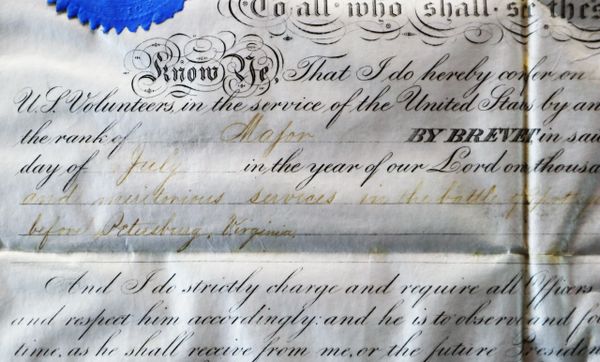 To all who shall see thes
Know Ye, That I do hereby confer on
U.S. Volunteers, in the service of the United States by an
the rank of Major BY BREVET in said
day of July in the year of our Lord one thousa
and meritorious services in the battle of
before Petersburg, Virginia.
And I do strictly charge and require all Officers
and respect him accordingly: and he is to observe and fo
time, as he shall receive from me, or the future President